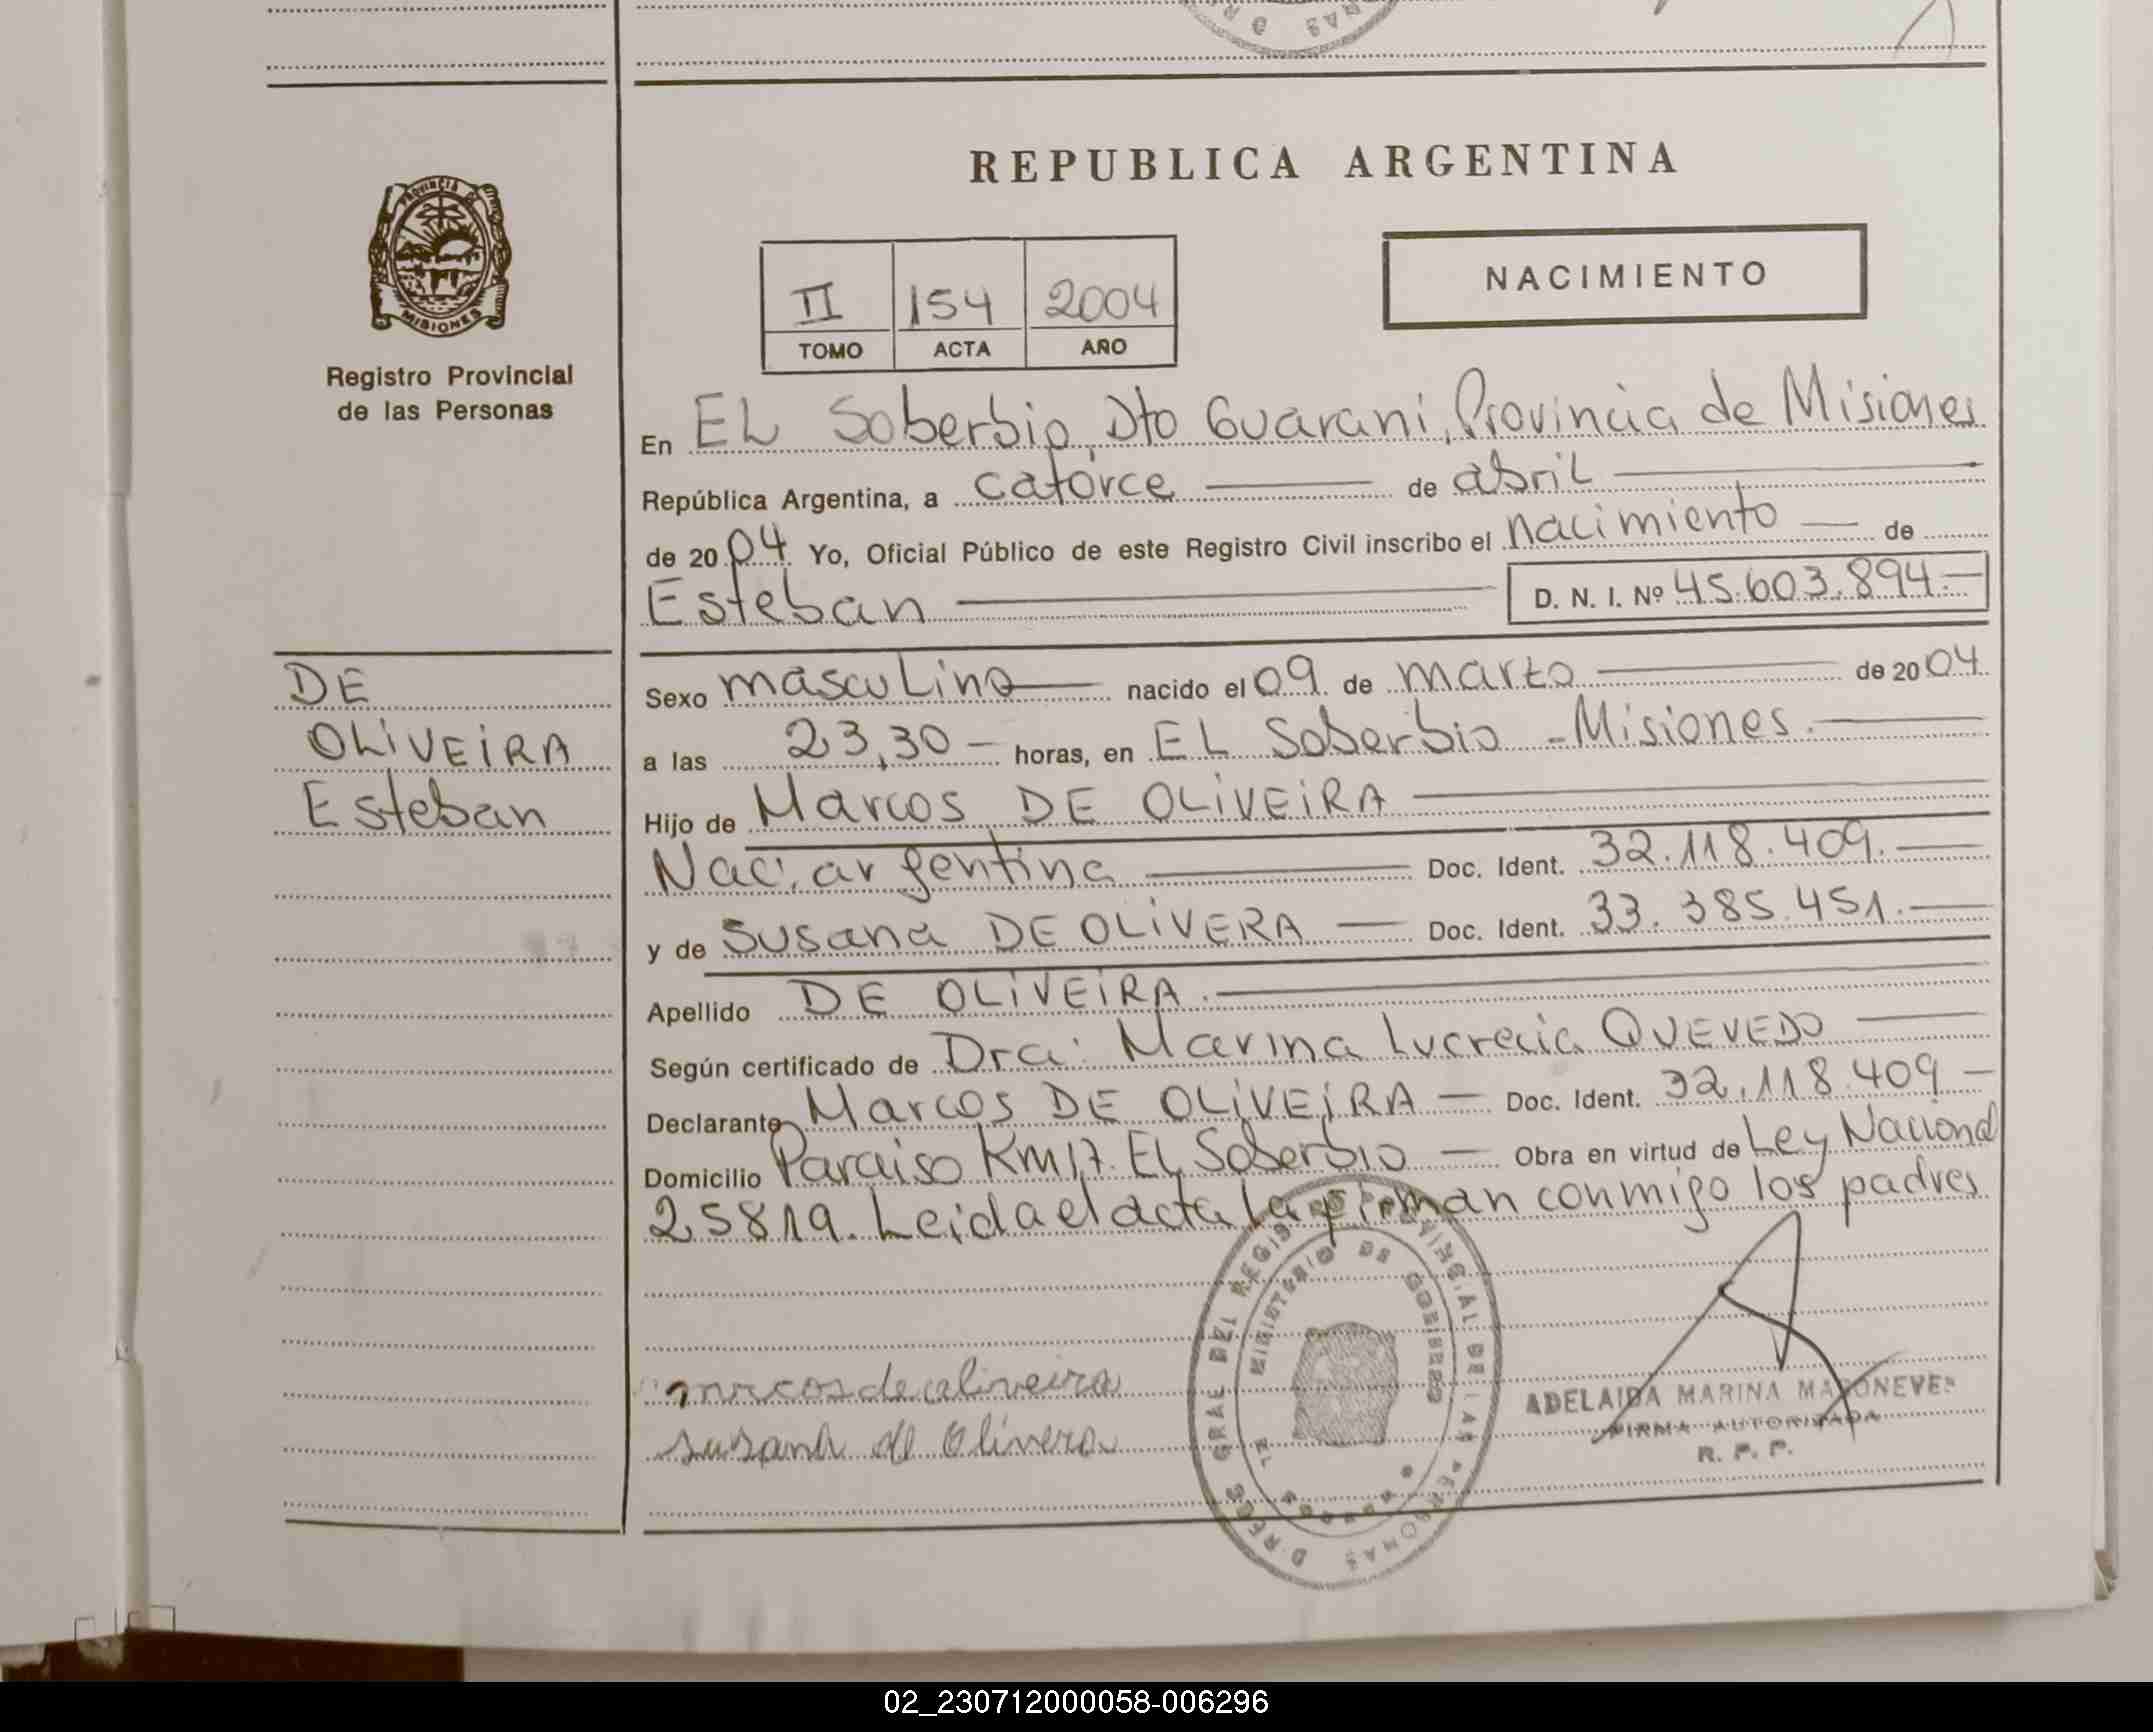 REPUBLICA ARGENTINA
PROVINCIA DE
MISIONES
Registro Provincial
de las Personas
NACIMIENTO
II 154 2004
TOMO ACTA AÑO
En EL Soberbio, Dto Guarani, Provincia de Misiones
República Argentina, a catorce de abril
de 2004 Yo, Oficial Público de este Registro Civil inscribo el nacimiento de
Esteban D. N. I. Nº 45.603.894.-
DE
OLIVEIRA
Esteban
Sexo masculino nacido el 09 de marzo de 2004
a las 23,30 horas, en EL Soberbio - Misiones.
Hijo de Marcos DE OLIVEIRA
Nac. argentina Doc. Ident. 32.118.409.
y de Susana DE OLIVERA Doc. Ident. 33.385.451.
Apellido DE OLIVEIRA.
Según certificado de Dra. Marina Lucrecia QUEVEDO
Declarante Marcos DE OLIVEIRA Doc. Ident. 32.118.409
Domicilio Paraiso Km 17. EL Soberbio Obra en virtud de Ley Nacional
25819. Leida el acta la firman conmigo los padres
marcos de oliveira
susana de Olivera
MINISTERIO DE GOBIERNO
ADELAIDA MARINA
FIRMA AUTORIZADA
R. P. P.
02_230712000058-006296